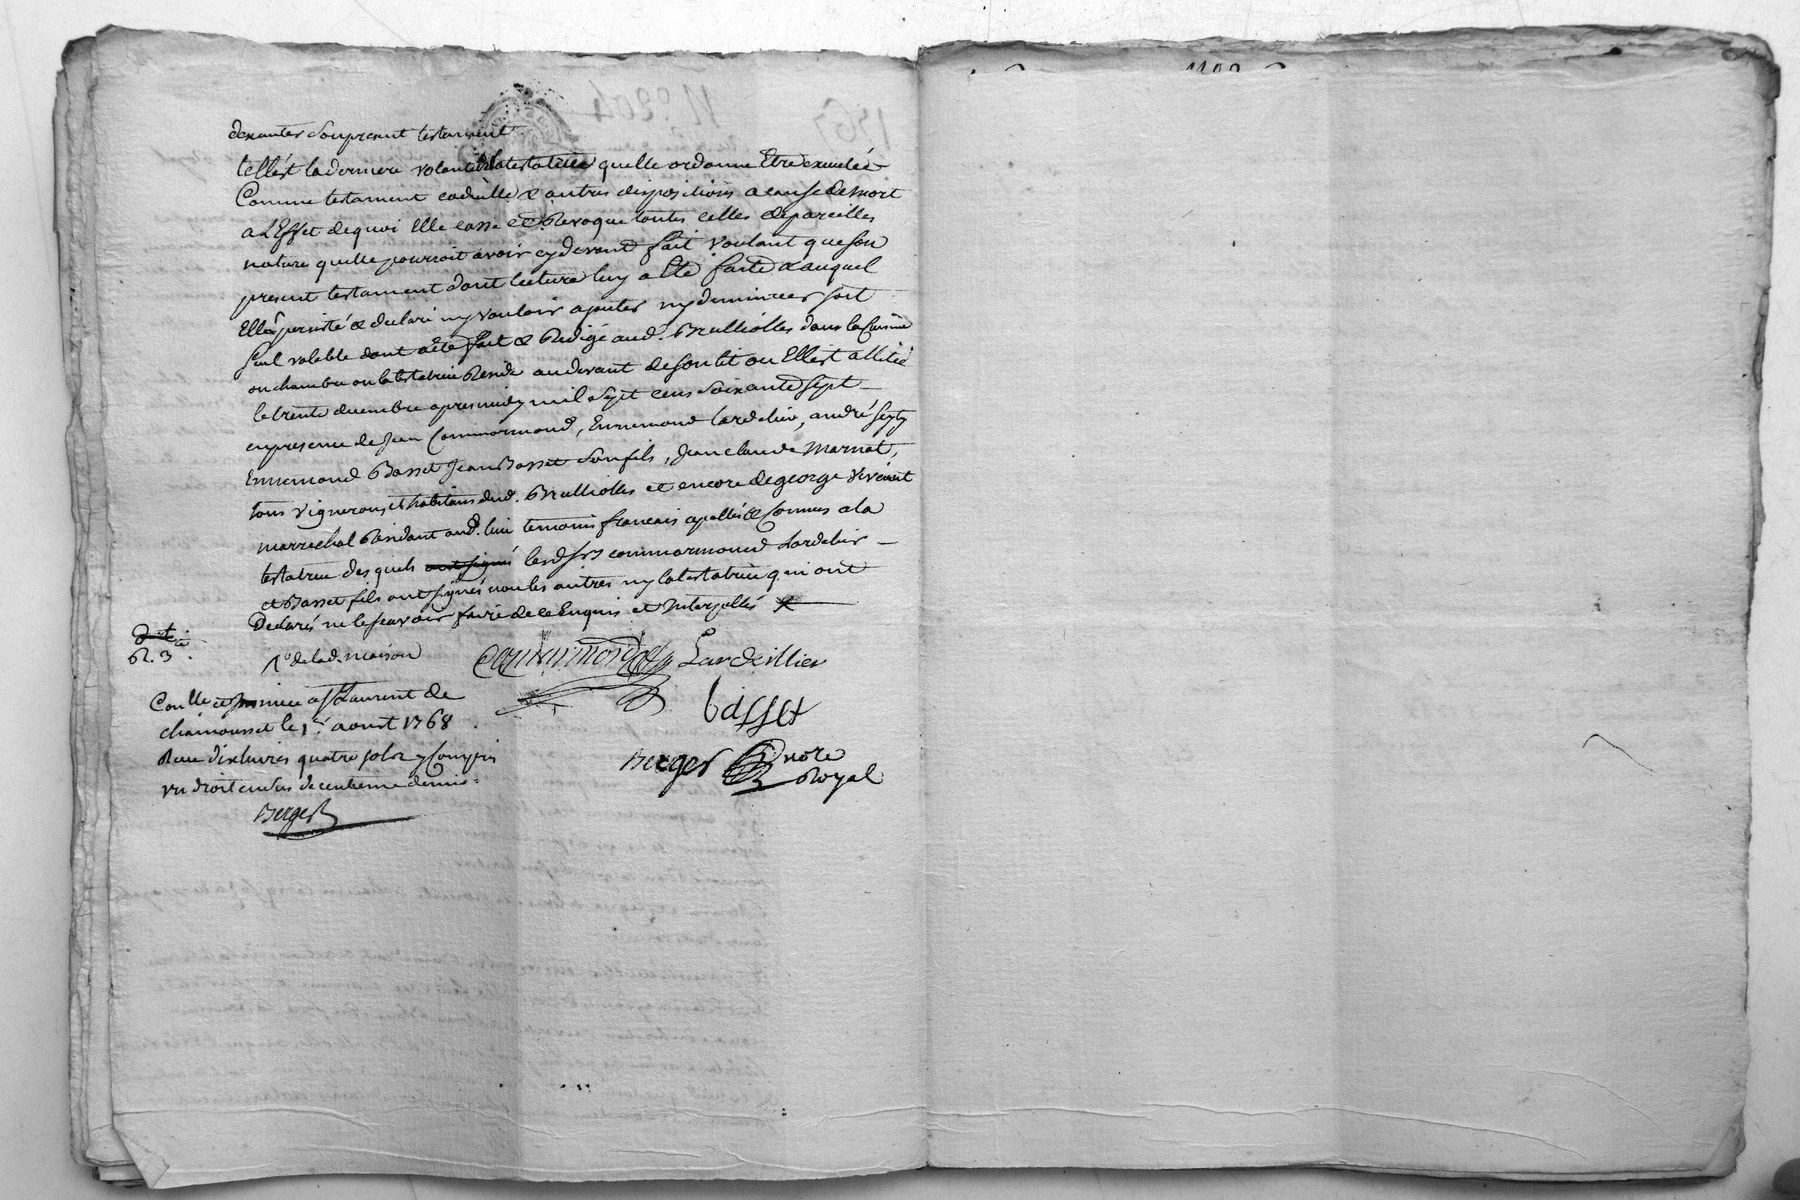 dexauter son present testament
telle est la derniere volonté de la testatrice quelle ordonne Etre exécutée
Comme testament codicille & autres dispositions a cause de mort
a L'Effet de quoi Elle casse et Revoque toutes celles de pareilles
nature quelle pourroit avoir cy devant fait voulant que son
present testament dont lecture luy a Eté faite & auquel
Elle a persisté & declaré ny vouloir ajouter ny diminuer soit
seul valable dont acte fait & Redigé aud. Brulliolles dans la Cuisine
ou chambre ou la testatrice Reside au devant de son lit ou Elle est allitée
le trente decembre apres midy mil sept cens soixante sept
en presence de Jean Commarmond, Ennemond Lardelier, andré
Ennemond Basset Jean Basset son fils, Jean claude Marnat,
tous vignerons et habitans dud. Brulliolles et encore de george
marrechal Residant aud. lieu temoins francais apellés & Connus a la
testatrice des quels ont signé lesd. Srs commarmond Lardelier
et Basset fils ont signés non les autres ny la testatrice qui ont
Declarés ne le scavoir faire de ce Enquis et Interpellés
R. 3
1° de lad. maison
Commarmond Lardellier
basset
Berger Nore
Royal
Conlle et insinué a St Laurent de
chamousset le 1er aoust 1768
Reçu dix livres quatre sols y Compris
un droit en sus de centieme denier
Berger
1767
N° 204